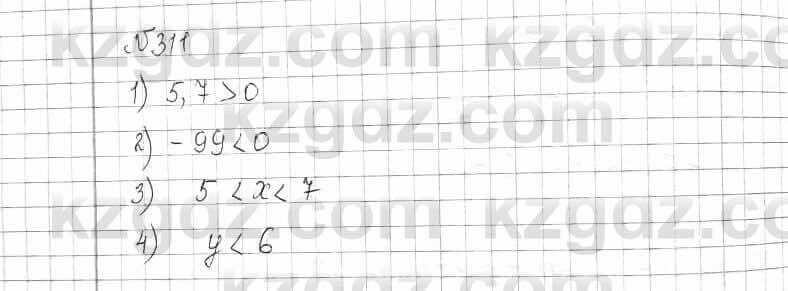 kzgdz.com kzgdz.com
№311
1) 5,7 > 0
kzgdz.com
2) - 99 < 0
3) 5 < x < 7
kzgdz.com kzgdz.com
4) y < 6
kzgdz.com